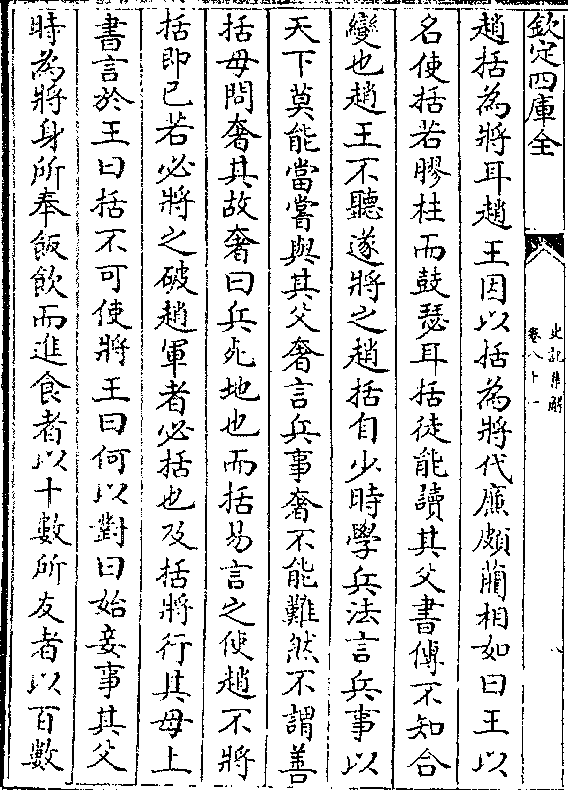 欽定四庫全
史記集解
卷八十一
趙括為將耳趙王因以括為將代廉頗藺相如曰王以
名使括若膠柱而鼓瑟耳括徒能讀其父書傳不知合
變也趙王不聽遂將之趙括自少時學兵法言兵事以
天下莫能當嘗與其父奢言兵事奢不能難然不謂善
括母問奢其故奢曰兵死地也而括易言之使趙不將
括即已若必將之破趙軍者必括也及括將行其母上
書言於王曰括不可使將王曰何以對曰始妾事其父
時為將身所奉飯飲而進食者以十數所友者以百數